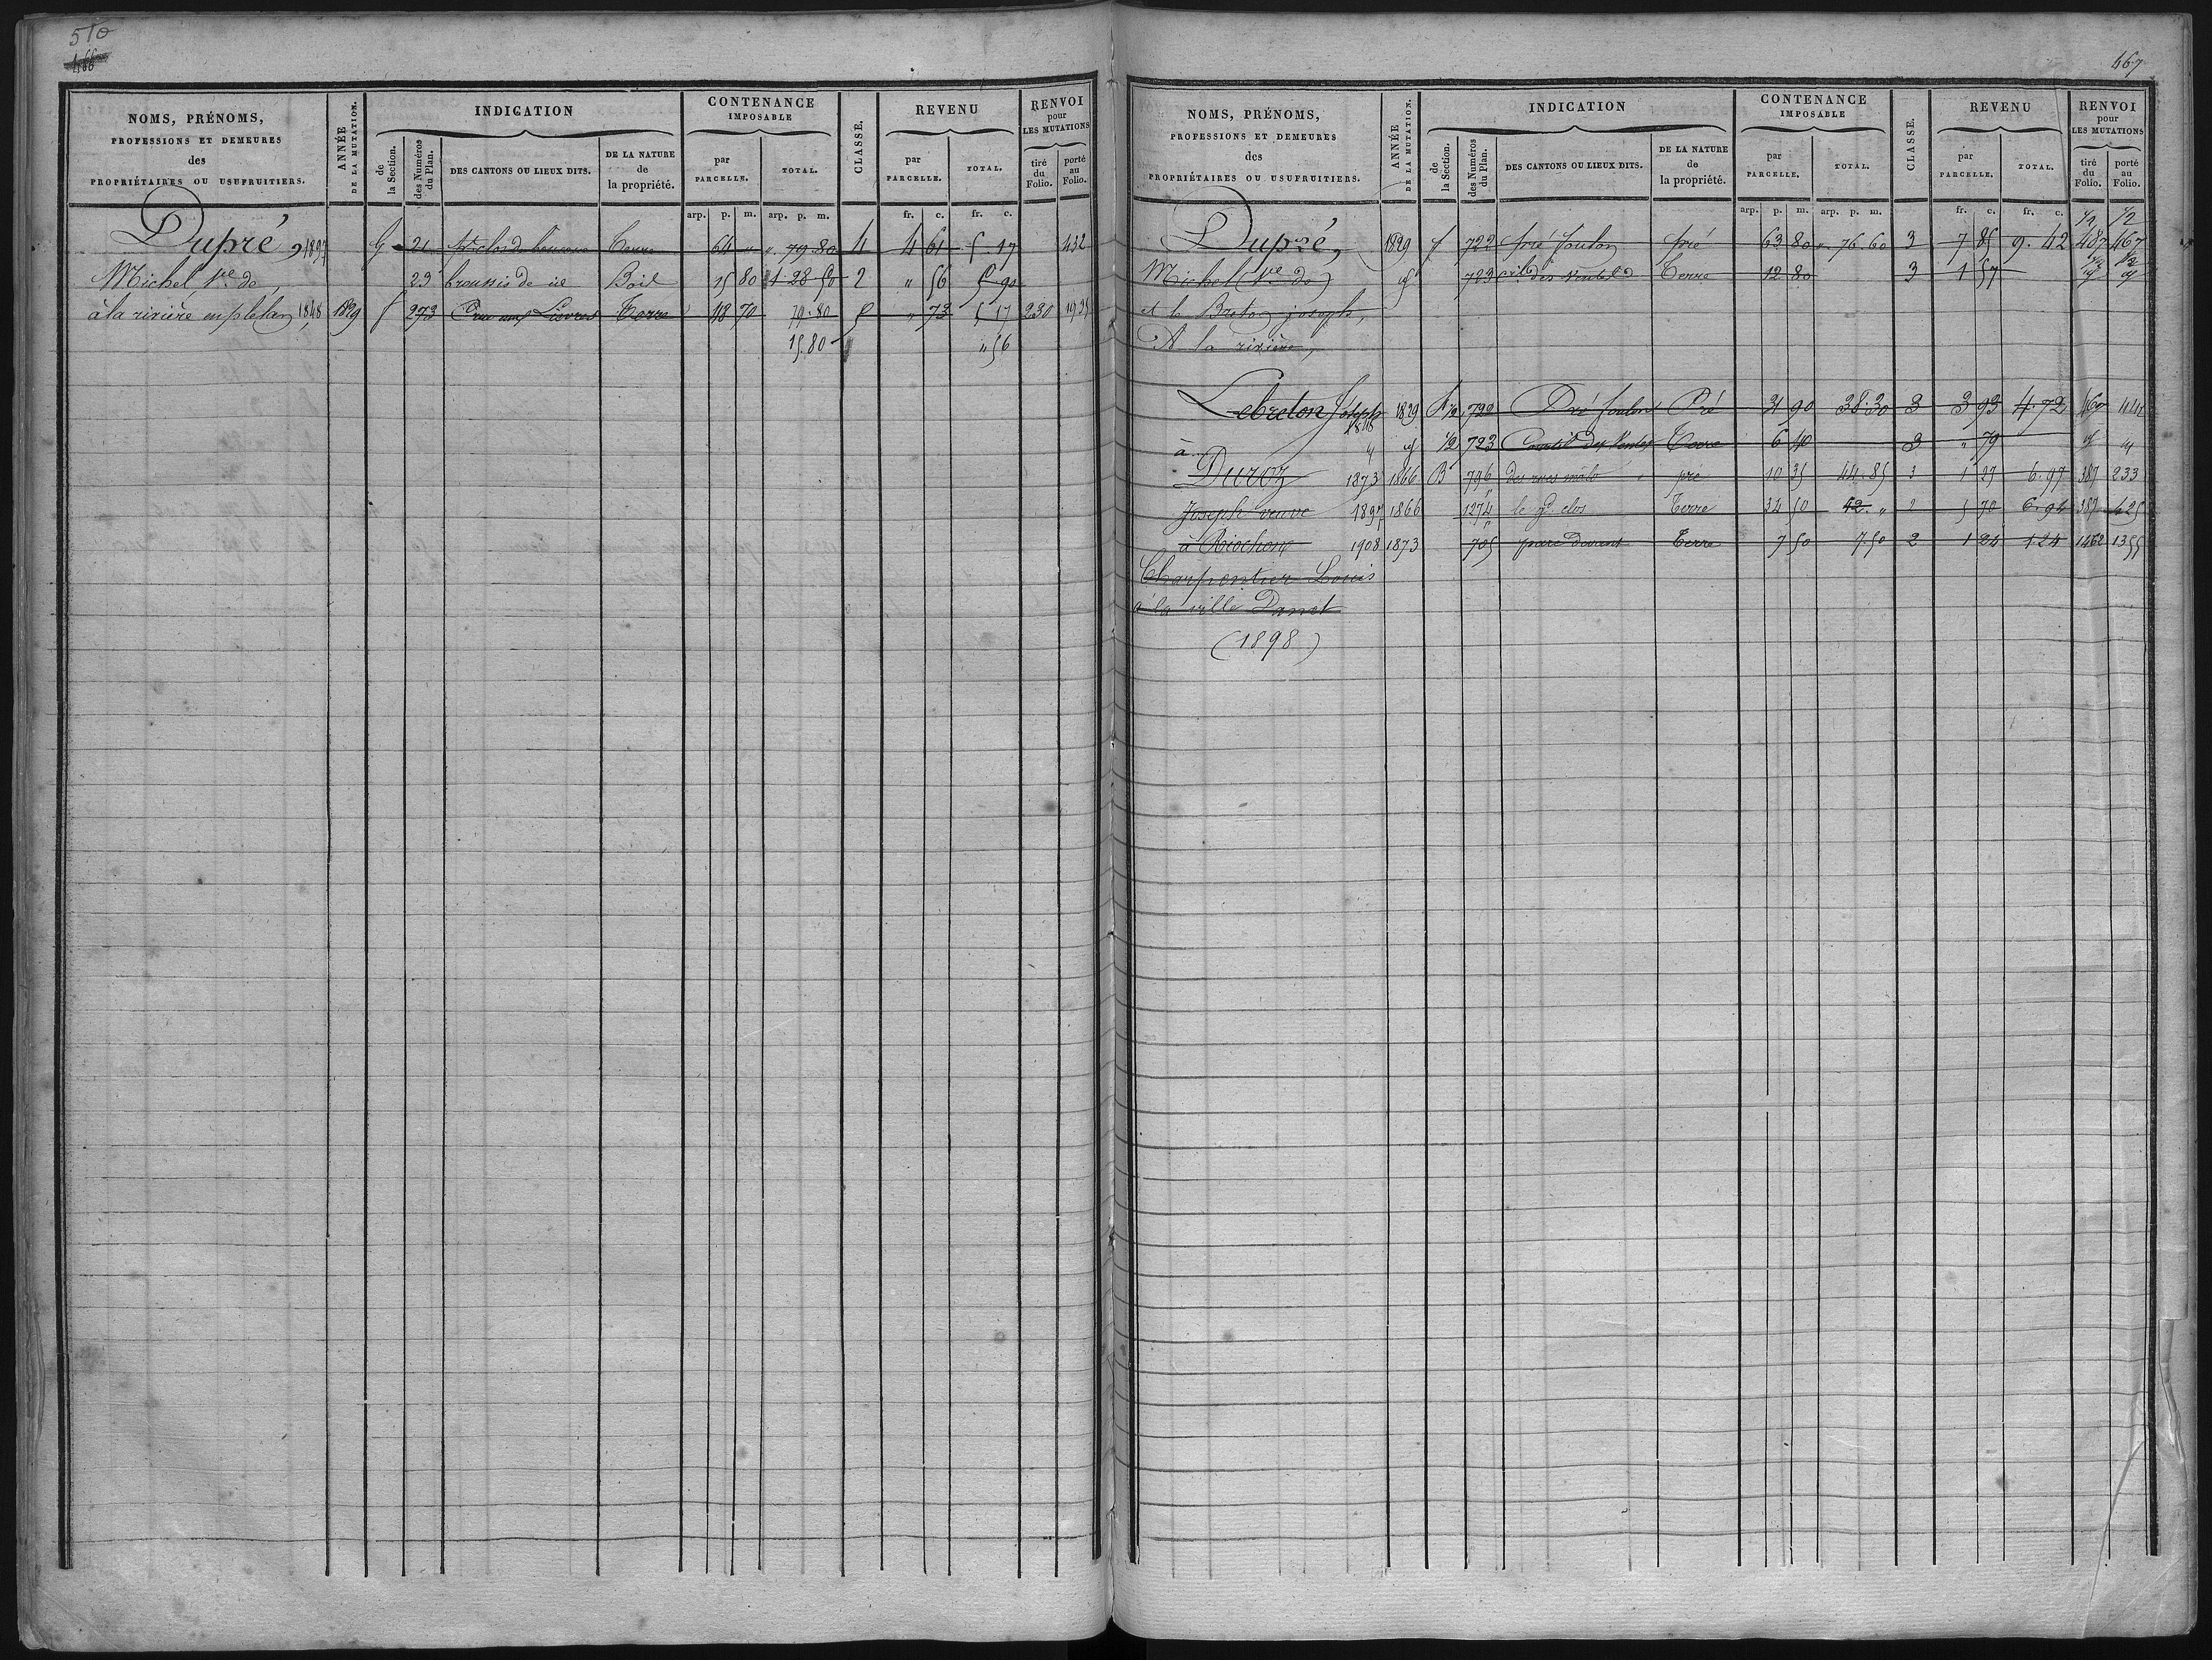 510
466
NOMS, PRÉNOMS,
PROFESSIONS ET DEMEURES
des
PROPRIÉTAIRES OU USUFRUITIERS.
ANNÉE
DE LA MUTATION.
INDICATION
de
la Section.
des Numéros
du Plan.
DES CANTONS OU LIEUX DITS.
DE LA NATURE
de
la propriété.
CONTENANCE
IMPOSABLE
par
PARCELLE.
TOTAL.
CLASSE.
REVENU
par
PARCELLE.
TOTAL.
RENVOI
pour
LES MUTATIONS
tiré
du
Folio.
porté
au
Folio.
arp. p. m. arp. p. m. fr. c. fr. c.
Dupré, 1897 G 21 Terre 64 " ". 79.80 4 4 61 5.17 432
Michel Ve de 23 Bois 15 80 1 28 50 2 " 56 5 90
à la rivière en plelan 1848 1829 f 273 Terre 48 70 79.80 5 " 73 5 17 230
15.80 " 56
467
NOMS, PRÉNOMS,
PROFESSIONS ET DEMEURES
des
PROPRIÉTAIRES OU USUFRUITIERS.
ANNÉE
DE LA MUTATION.
INDICATION
de
la Section.
des Numéros
du Plan.
DES CANTONS OU LIEUX DITS.
DE LA NATURE
de
la propriété.
CONTENANCE
IMPOSABLE
par
PARCELLE.
TOTAL.
CLASSE.
REVENU
par
PARCELLE.
TOTAL.
RENVOI
pour
LES MUTATIONS
tiré
du
Folio.
porté
au
Folio.
arp. p. m. arp. p. m. fr. c. fr. c. 1/2 1/2
Dupré, 1829 f 722 pré foulon pré 63 80 ". 76.60 3 7 85 9.42 487 467
Michel (Ve de) 723 Terre 12 80 3 1 57
et le Breton joseph,
A la rivière,
Lebreton Joseph 1829 722 Pré foulon Pré 31 90 38.30 3 3 93 4.72 467 444
1848
à 1/2 723 Courtil des Ventes Terre 6 40 3 " 79
Duroz 1873 1866 B 796 pré 10 35 44.85 3 1 27 6.97 387 233
Joseph veuve 1897 1866 1274 le gd clos Terre 34 50 42. " 2 5 70 6.94 387 425
à Riochon 1908 1873 705 parc devant Terre 7 50 7.50 2 1 24 1.24 1462 1355
Charpentier Louis
à la ville Danet
(1898)